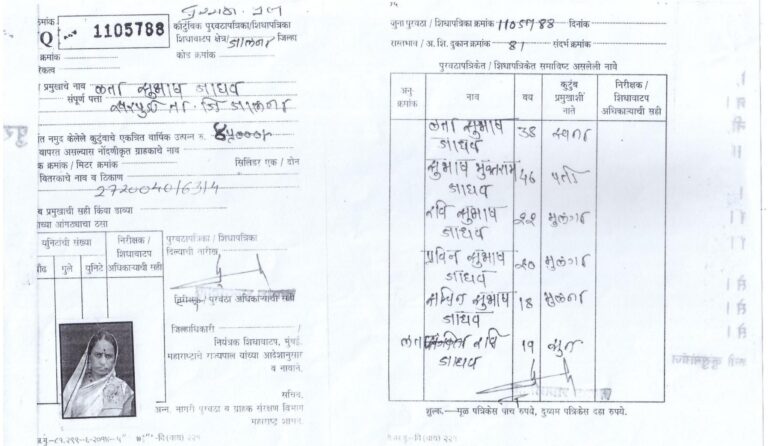 Q
1105788
कौटुंबिक पुरवठापत्रिका/शिधापत्रिका
शिधावाटप क्षेत्र/ जालना जिल्हा
कोड क्रमांक
प्रमुखाचे नाव लता सुभाष जाधव
संपूर्ण पत्ता
ता. जि जालना
नमुद केलेले कुटुंबाचे एकत्रित वार्षिक उत्पन्न रु.
वापरत असल्यास नोंदणीकृत ग्राहकाचे नाव
क्रमांक / मिटर क्रमांक सिलिंडर एक / दोन
वितरकाचे नाव व ठिकाण
272004016314
प्रमुखाची सही किंवा डाव्या
च्या आंगठ्याचा ठसा
युनिटांची संख्या
निरीक्षक /
शिधावाटप
अधिकाऱ्याची सही
प्रौढ मुले युनिटे
पुरवठापत्रिका / शिधापत्रिका
दिल्याची तारीख
निरीक्षक / पुरवठा अधिकाऱ्याची सही
जिल्हाधिकारी
नियंत्रक शिधावाटप, मुंबई.
महाराष्ट्राचे राज्यपाल यांच्या आदेशानुसार
व नावाने.
सचिव,
अन्न, नागरी पुरवठा व ग्राहक संरक्षण विभाग
महाराष्ट्र शासन.
जुना पुरवठा / शिधापत्रिका क्रमांक 1105788 दिनांक
रास्तभाव / अ. शि. दुकान क्रमांक 81 संदर्भ क्रमांक
पुरवठापत्रिकेत / शिधापत्रिकेत समाविष्ट असलेली नावे
अनु क्रमांक
नाव
वय
कुटुंब प्रमुखाशी नाते
निरीक्षक / शिधावाटप अधिकाऱ्याची सही
लता सुभाष जाधव 38 स्वतः
सुभाष मुक्तराम जाधव 46 पती
रवि सुभाष जाधव २२ मुलगा
प्रविन सुभाष जाधव २० मुलगा
सुभाष जाधव 18 मुलगा
रवि जाधव 19 सुन
शुल्क.—मूळ पत्रिकेस पाच रुपये, दुय्यम पत्रिकेस दहा रुपये.